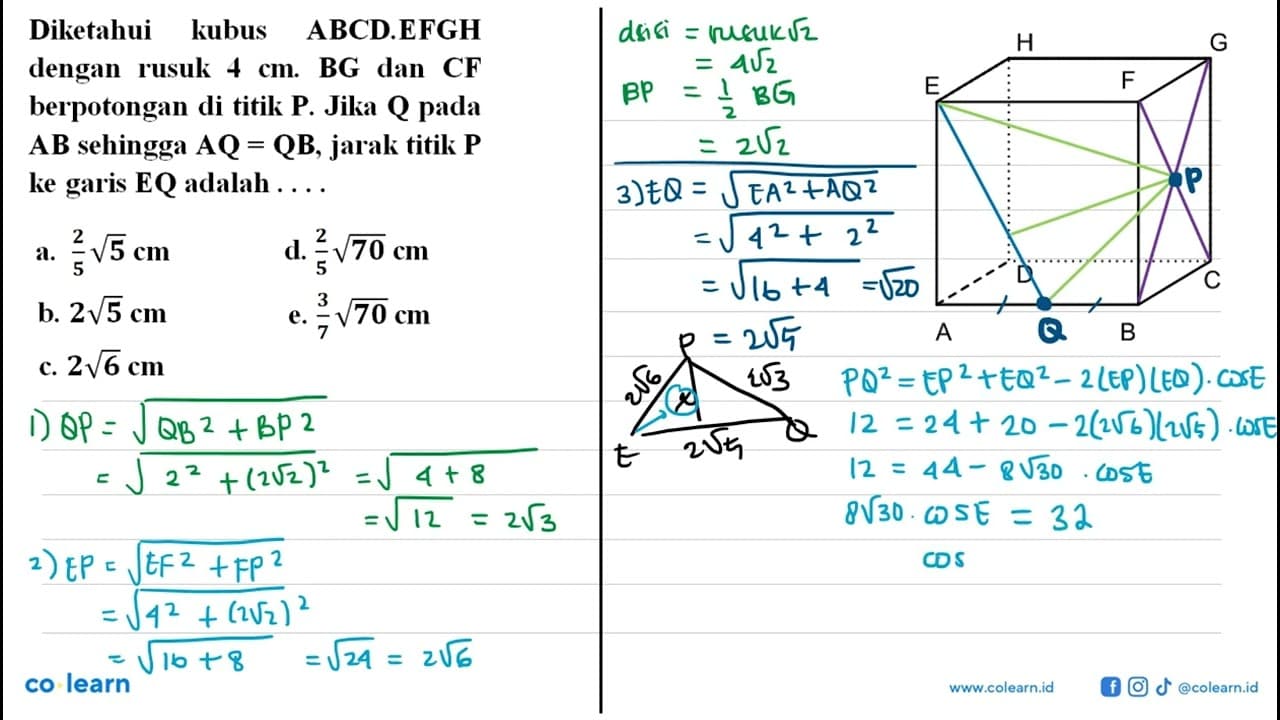 Diketahui kubus ABCD.EFGH
dengan rusuk 4 cm. BG dan CF
berpotongan di titik P. Jika Q pada
AB sehingga AQ = QB, jarak titik P
ke garis EQ adalah . . . .
a. 2/5 √5 cm
d. 2/5 √70 cm
b. 2√5 cm
e. 3/7 √70 cm
c. 2√6 cm
1) QP = √QB2 + BP2
= √2² + (2√2)² = √4 + 8
= √12 = 2√3
2) EP = √EF2 + FP2
= √4² + (2√2)²
= √16 + 8 = √24 = 2√6
co learn
dsisi = rusuk√2
= 4√2
BP = 1/2 BG
= 2√2
3) EQ = √EA² + AQ²
= √4² + 2²
= √16 + 4 = √20
= 2√5
P
2√6
2√3
x
E
2√5
Q
H
G
E
F
P
D
C
A
Q
B
PQ² = EP² + EQ² - 2(EP)(EQ). COSE
12 = 24 + 20 - 2(2√6)(2√5). COSE
12 = 44 - 8√30 . COSE
8√30. COSE = 32
COS
www.colearn.id
@colearn.id